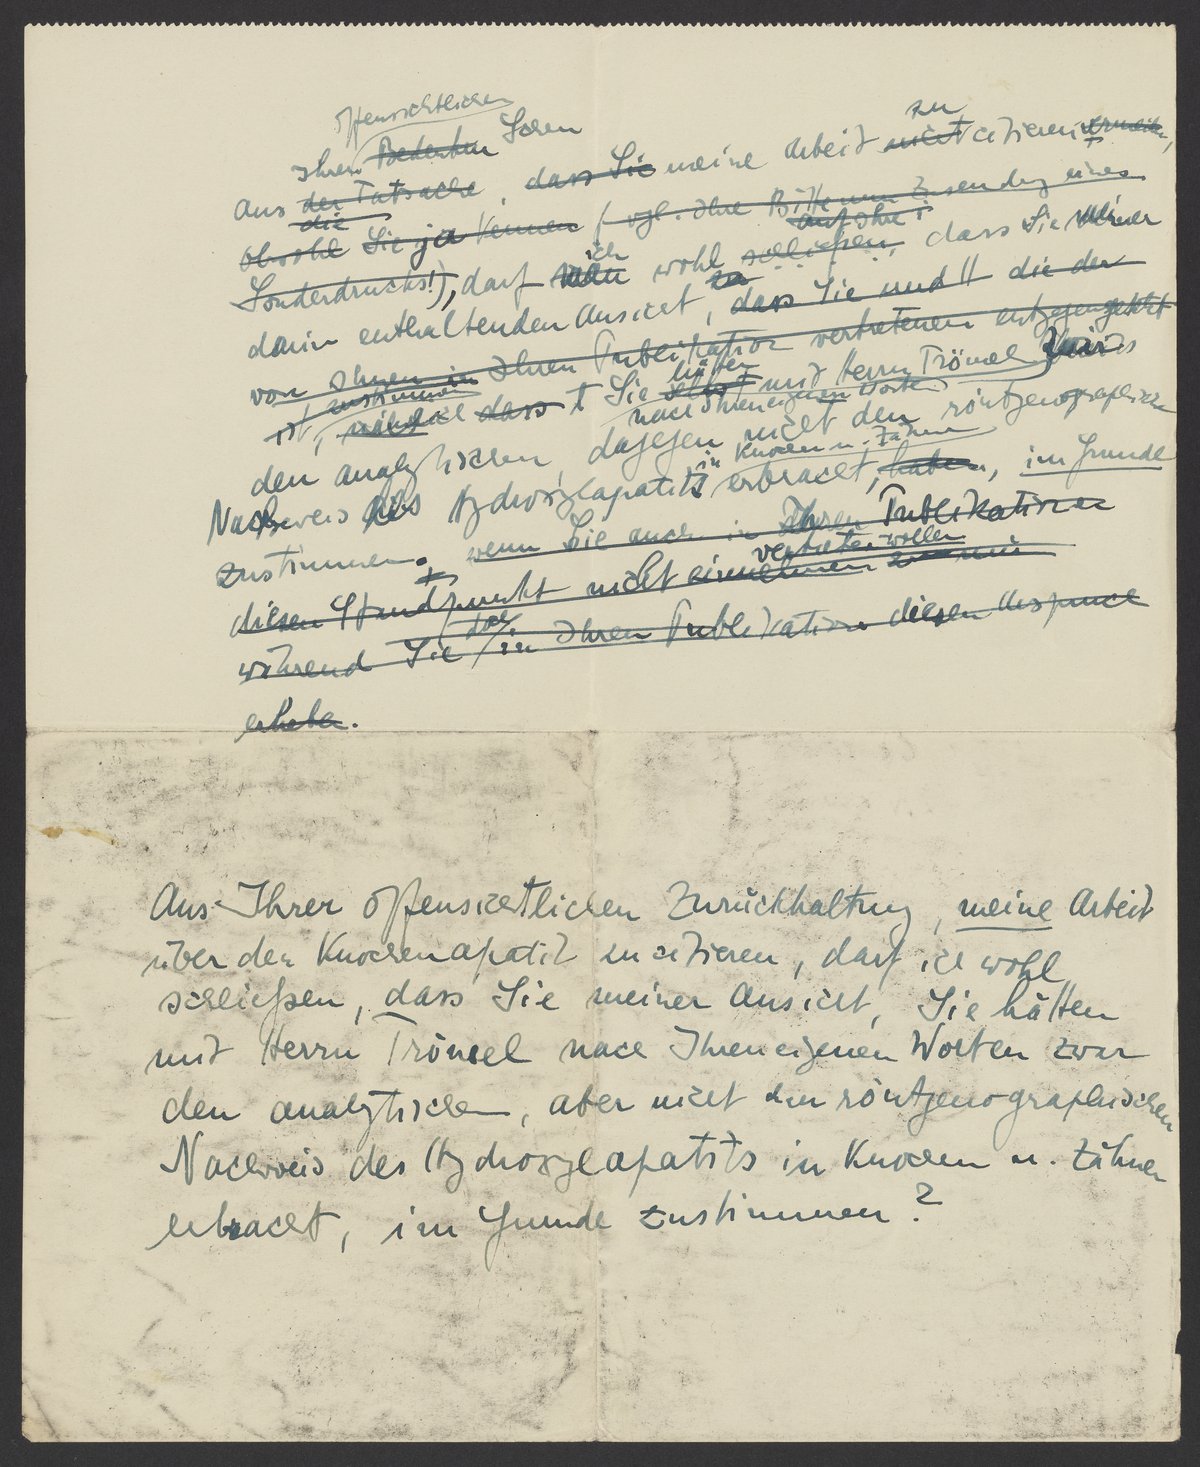 offensichtlichen
Ihrer Bedenken Scheu zu
Aus der Tatsache, dass Sie meine Arbeit nicht citieren,
die
obwohl Sie ja kennen (vgl. Ihre Bitte um Zusendung eines
auf Ihre
Sonderdrucks!), darf man ich wohl schließen, dass Sie meiner
darin enthaltenen Ansicht, dass Sie und die der
von Ihnen in Ihren Publikation vertretenen entgegengesetzt
zustimmen
ist, nämlich dass Sie hätten mit Herrn Trömel zwar
nach Ihren eigenen Worten
den analytischen, dagegen nicht den röntgenographischen
in Knochen u. Zähnen
Nachweis des Hydroxylapatits erbracht, haben, im Grunde
zustimmen. wenn Sie auch in Ihren Publikationen
vertreten wollen
diesen Standpunkt nicht einnehmen
während Sie doch in Ihren Publikationen diesen Anspruch
erheben.
Aus Ihrer offensichtlichen Zurückhaltung, meine Arbeit
über den Knochenapatit zu citieren, darf ich wohl
schließen, dass Sie meiner Ansicht, Sie hätten
mit Herrn Trömel nach Ihren eigenen Worten zwar
den analytischen, aber nicht den röntgenographischen
Nachweis des Hydroxylapatits in Knochen u. Zähnen
erbracht, im Grunde zustimmen?